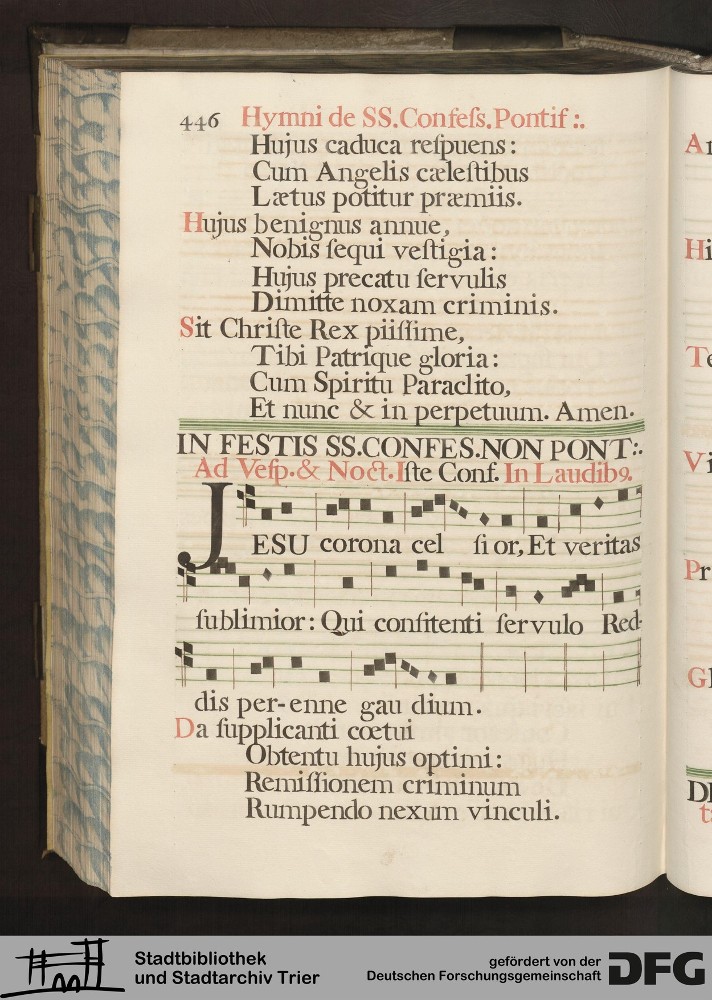 446 Hymni de SS. Confeſs. Pontif :.
Hujus caduca reſpuens :
Cum Angelis cæleſtibus
Lætus potitur præmiis.
Hujus benignus annue,
Nobis ſequi veſtigia :
Hujus precatu ſervulis
Dimitte noxam criminis.
Sit Chriſte Rex piiſſime,
Tibi Patrique gloria :
Cum Spiritu Paraclito,
Et nunc & in perpetuum. Amen.
IN FESTIS SS. CONFES. NON PONT :.
Ad Veſp. & Noct. Iſte Conf. In Laudibꝰ.
JESU corona cel ſi or, Et veritas
ſublimior : Qui confitenti ſervulo Red-
dis per-enne gau dium.
Da ſupplicanti cœtui
Obtentu hujus optimi :
Remiſſionem criminum
Rumpendo nexum vinculi.
A
Hi
T
Vi
Pr
Gl
D
t
Stadtbibliothek
und Stadtarchiv Trier
gefördert von der
Deutschen Forschungsgemeinschaft
DFG